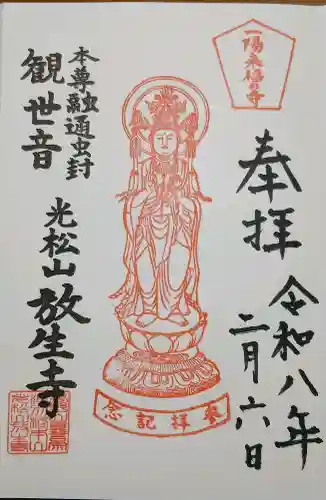 一陽来福の寺
奉拝
令和八年
二月六日
本尊融通虫封
観世音
光松山放生寺
参拝記念